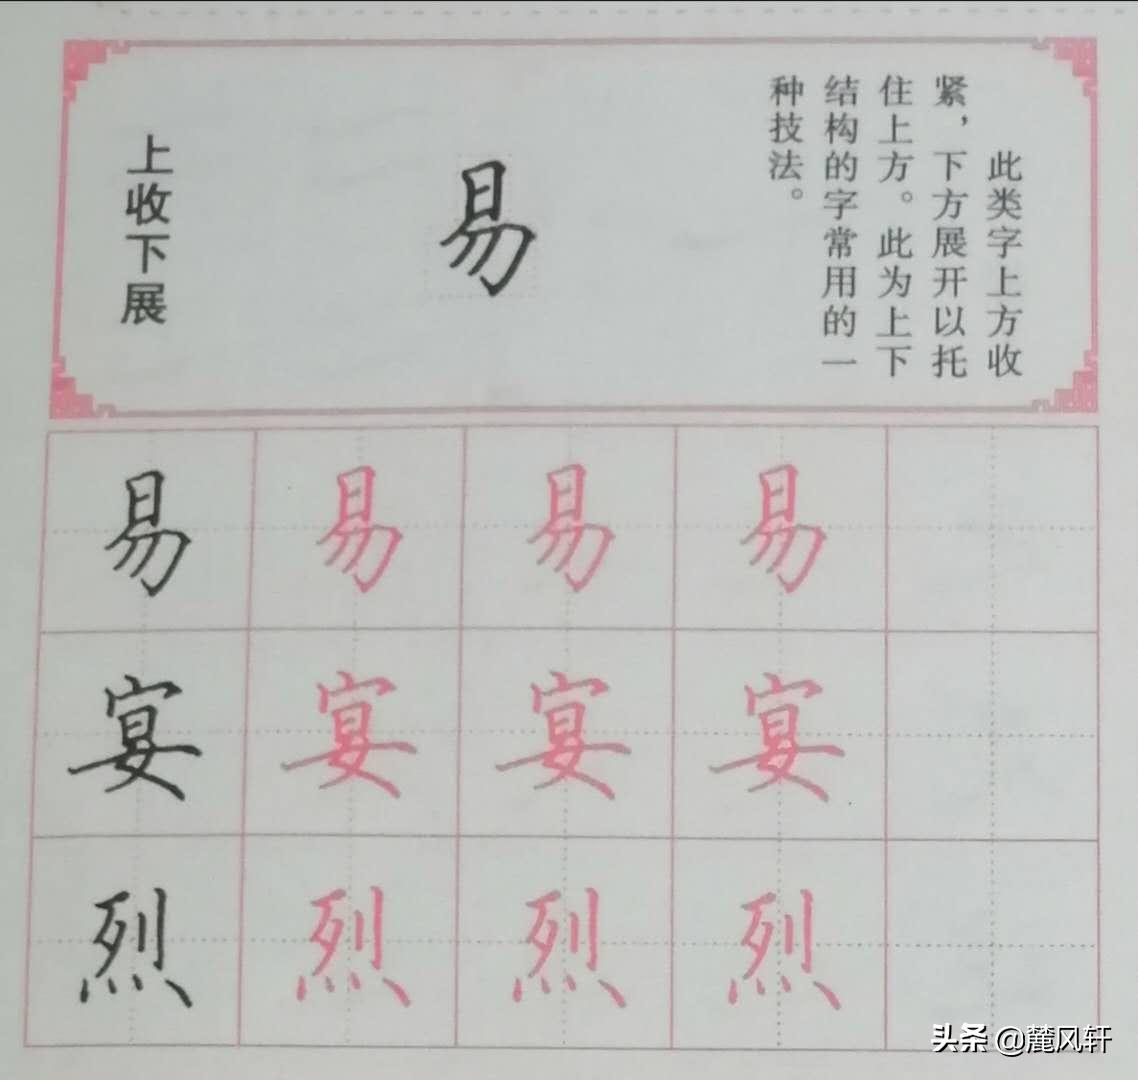 上收下展
易
此类字上方收
紧，下方展开以托
住上方。此为上下
结构的字常用的一
种技法。
易 易 易 易
宴 宴 宴 宴
烈 烈 烈 烈
头条 @麓风轩